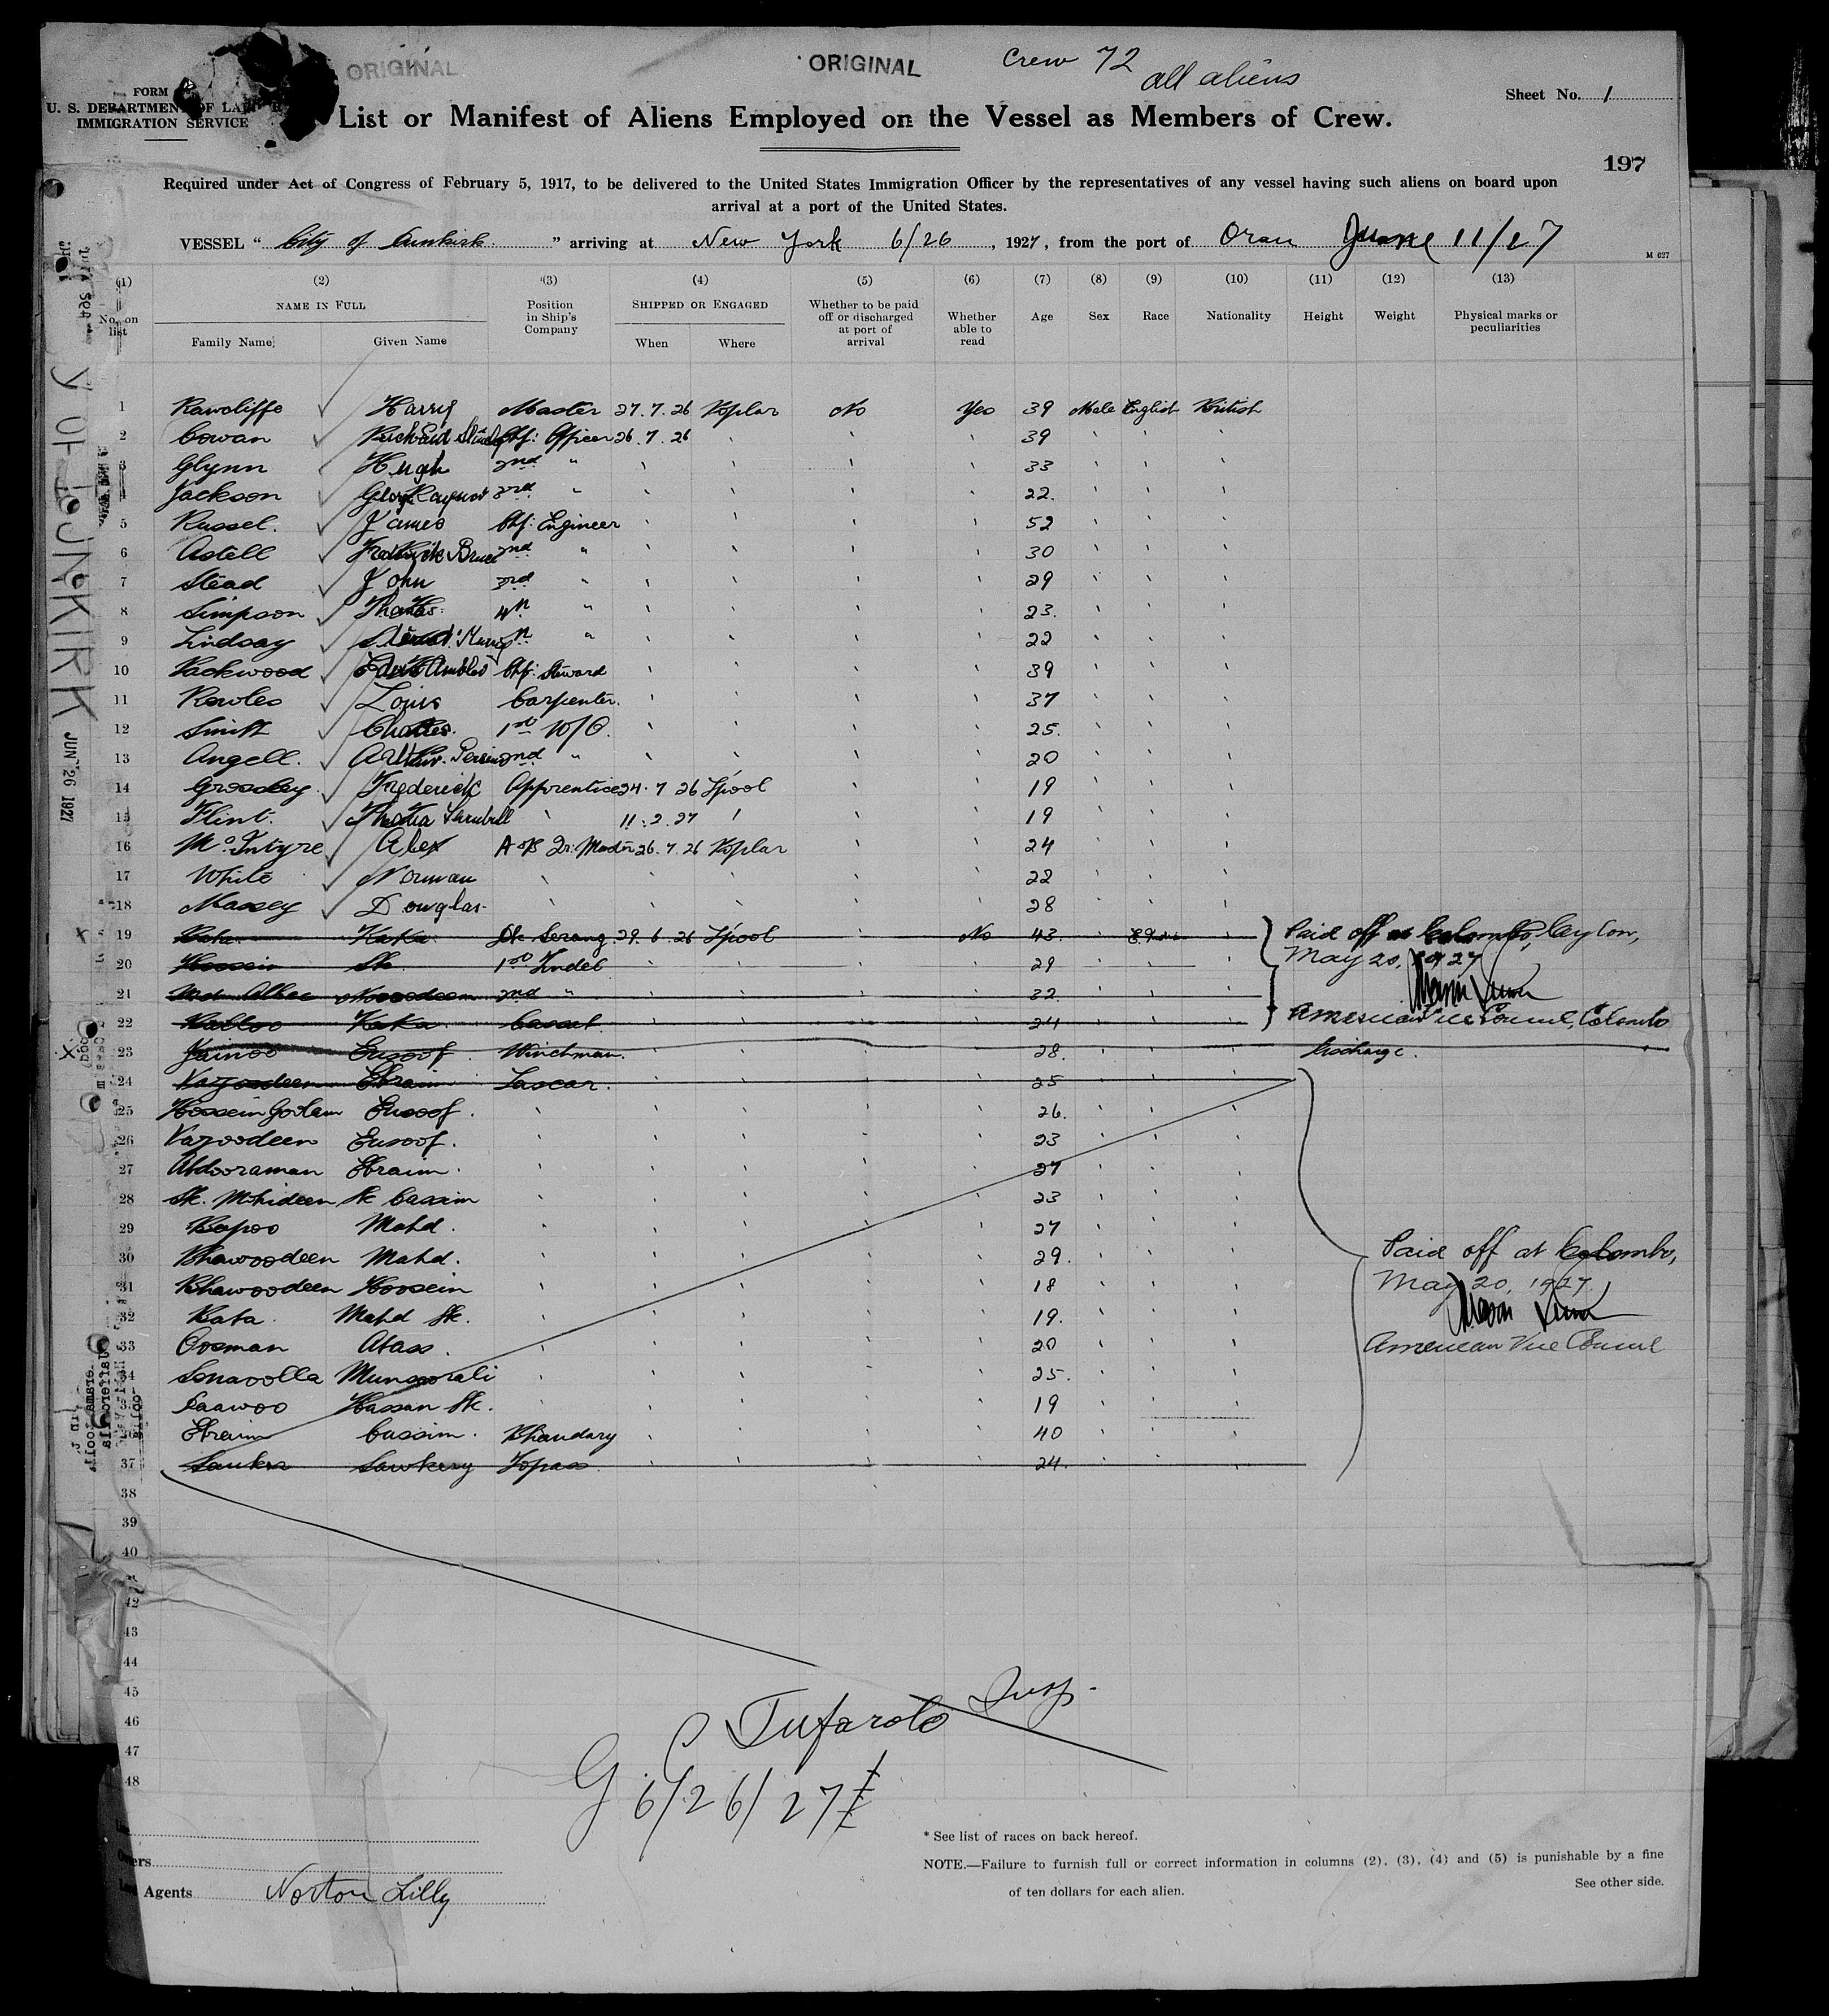 ORIGINAL ORIGINAL Crew 72
all aliens
FORM
U. S. DEPARTMENT OF LABOR
IMMIGRATION SERVICE
Sheet No. 1
List or Manifest of Aliens Employed on the Vessel as Members of Crew.
197
Required under Act of Congress of February 5, 1917, to be delivered to the United States Immigration Officer by the representatives of any vessel having such aliens on board upon
arrival at a port of the United States.
VESSEL " City of Dunkirk " arriving at New York 6/26, 1927, from the port of Oran June 11/27
M 627
(1) (2) (3) (4) (5) (6) (7) (8) (9) (10) (11) (12) (13)
No. on list NAME IN FULL Family Name Given Name Position in Ship's Company SHIPPED OR ENGAGED When Where Whether to be paid off or discharged at port of arrival Whether able to read Age Sex Race Nationality Height Weight Physical marks or peculiarities
1 Rawcliffe Harry Master 27.7.26 Poplar No Yes 39 Male English British
2 Cowan Richard Chf: Officer 26.7.26 ' ' ' 39 ' ' '
3 Glynn Hugh 2nd " ' ' ' ' 33 ' ' '
Jackson George Raynor 3rd " ' ' ' ' 22. ' ' '
5 Russel. James Chf: Engineer ' ' ' ' 52 ' ' '
6 Astell Fredrick Bruce 2nd " ' ' ' ' 30 ' ' '
7 Stead John 3rd " ' ' ' ' 29 ' ' '
8 Simpson Thomas 4th " ' ' ' ' 23. ' ' '
9 Lindsay " ' ' ' ' 22 ' ' '
10 Packwood Chf: Steward ' ' ' ' 39 ' ' '
11 Rowles Louis Carpenter. ' ' ' ' 37 ' ' '
12 Smith Charles. 1st W/O. ' ' ' ' 25. ' ' '
13 Angell. Arthur 2nd " ' ' ' ' 20 ' ' '
14 Frederick Apprentice 24.7.26 L'pool ' ' 19 ' ' '
15 Flint. ' 11.2.27 ' ' ' 19 ' ' '
16 McIntyre Alex 26.7.26 Poplar ' ' 24 ' ' '
17 White Norman ' ' ' ' ' 22 ' ' '
18 Massey Douglas ' ' ' ' ' 28 ' ' '
19 Kaka Dk Serang 29.6.26 L'pool ' No 43 ' ' Paid off at Colombo, Ceylon,
20 Hossein Sk 1st Tindel ' ' ' ' 29 ' ' ' May 20, 1927
21 2nd " ' ' ' ' 32 ' ' '
22 Kaka Cassab ' ' ' ' 24 ' ' ' American Vice Consul, Colombo
23 Jainoo Eusoof. Winchman. ' ' ' ' 28. ' ' ' Discharge.
24 Ebraim Lascar. ' ' ' ' 25 ' ' '
25 Hossein Goolam Eusoof. ' ' ' ' ' 26. ' ' '
26 Eusoof. ' ' ' ' ' 23 ' ' '
27 Abdooraman Ebraim. ' ' ' ' ' 27 ' ' '
28 Sk. Mohideen Sk Cassim ' ' ' ' ' 23 ' ' '
29 Bapoo Mahd. ' ' ' ' ' 27 ' ' '
30 Bhawoodeen Mahd. ' ' ' ' ' 29. ' ' ' Paid off at Colombo,
31 Bhawoodeen Hossein ' ' ' ' ' 18 ' ' ' May 20, 1927
32 Bata. Mahd Sk. ' ' ' ' ' 19. ' ' '
33 Oosman Abass. ' ' ' ' ' 20 ' ' ' American Vice Consul
34 Sonaoolla Munsoorali ' ' ' ' ' 25. ' ' '
Daawoo Hassan Sk. ' ' ' ' ' 19 ' ' '
36 Ebraim Cassim. Bhandary ' ' ' ' 40 ' ' '
37 Topass ' ' ' ' 24. ' ' '
38
39
40
42
43
44
45
46
47
48
G. C. Tufarolo Insp.
6/26/27
* See list of races on back hereof.
NOTE.—Failure to furnish full or correct information in columns (2), (3), (4) and (5) is punishable by a fine
of ten dollars for each alien.
See other side.
Agents Norton Lilly
Y OF DUNKIRK JUN 26 1927